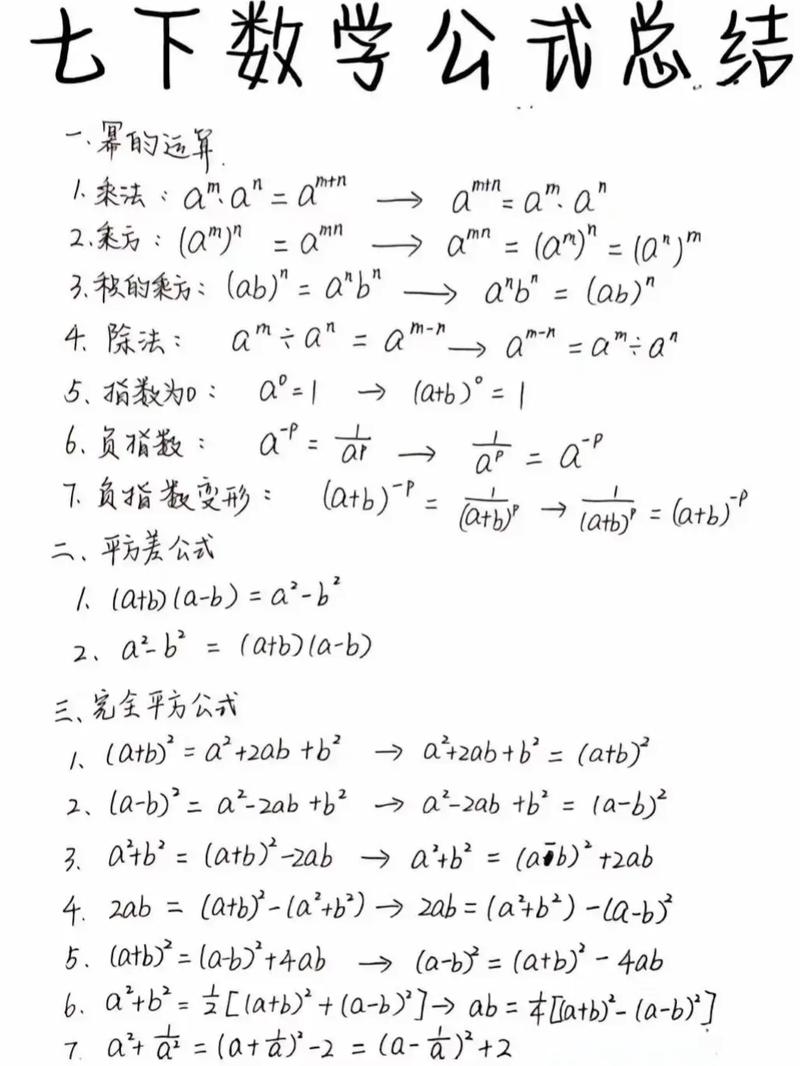 七下数学公式总结
一.幂的运算.
1.乘法：aᵐ·aⁿ=aᵐ⁺ⁿ → aᵐ⁺ⁿ=aᵐ·aⁿ
2.乘方：(aᵐ)ⁿ=aᵐⁿ → aᵐⁿ=(aᵐ)ⁿ=(aⁿ)ᵐ
3.积的乘方：(ab)ⁿ=aⁿbⁿ → aⁿbⁿ=(ab)ⁿ
4.除法：aᵐ÷aⁿ=aᵐ⁻ⁿ → aᵐ⁻ⁿ=aᵐ÷aⁿ
5、指数为0：a⁰=1 → (a+b)⁰=1
6、负指数：a⁻ᵖ=1/aᵖ → 1/aᵖ=a⁻ᵖ
7.负指数变形：(a+b)⁻ᵖ=1/(a+b)ᵖ → 1/(a+b)ᵖ=(a+b)⁻ᵖ
二、平方差公式
1、(a+b)(a-b)=a²-b²
2、a²-b²=(a+b)(a-b)
三、完全平方公式
1、(a+b)²=a²+2ab+b² → a²+2ab+b²=(a+b)²
2、(a-b)²=a²-2ab+b² → a²-2ab+b²=(a-b)²
3.a²+b²=(a+b)²-2ab → a²+b²=(a-b)²+2ab
4.2ab=(a+b)²-(a²+b²) → 2ab=(a²+b²)-(a-b)²
5.(a+b)²=(a-b)²+4ab → (a-b)²=(a+b)²-4ab
6.a²+b²=1/2[(a+b)²+(a-b)²] → ab=1/4[(a+b)²-(a-b)²]
7.a²+1/a²=(a+1/a)²-2=(a-1/a)²+2